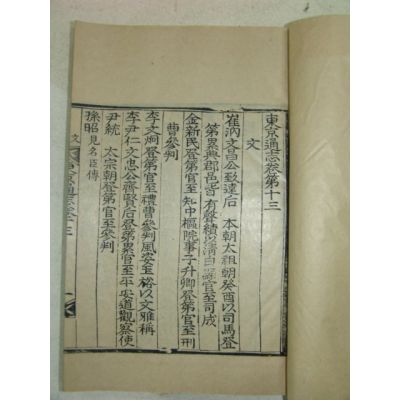 東京通志卷第十三
文
崔汭文昌公致遠后 本朝太祖朝癸酉以司馬登
第累典郡邑皆有聲績以淸白 官至司成
金新民登第官至知中樞院事子升卿登第官至刑
曹參判
李文炯登第官至禮曹參判風姿 裕以文雅稱
李尹仁文忠公齊賢后登第累官至平安道觀察使
尹統 太宗朝登第官至參判
孫昭見名臣傳
文
東京通志卷十三